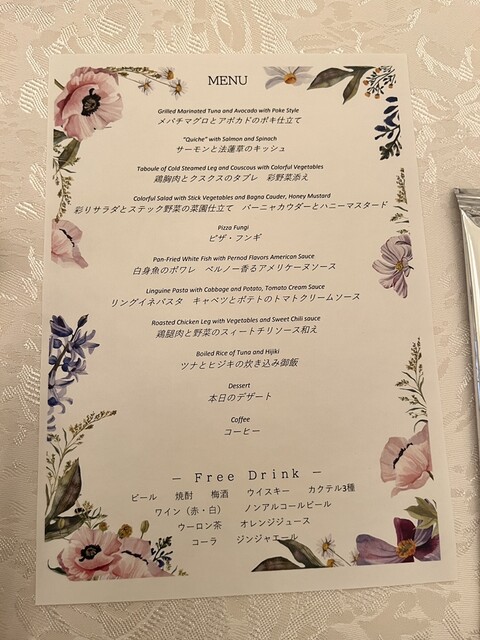 MENU
Grilled Marinated Tuna and Avocado with Poke Style
メバチマグロとアボカドのポキ仕立て
"Quiche" with Salmon and Spinach
サーモンと法蓮草のキッシュ
Taboule of Cold Steamed Leg and Couscous with Colorful Vegetables
鶏胸肉とクスクスのタブレ　彩野菜添え
Colorful Salad with Stick Vegetables and Bagna Cauder, Honey Mustard
彩りサラダとステック野菜の菜園仕立て　バーニャカウダーとハニーマスタード
Pizza Fungi
ピザ・フンギ
Pan-Fried White Fish with Pernod Flavors American Sauce
白身魚のポワレ　ペルノー香るアメリケーヌソース
Linguine Pasta with Cabbage and Potato, Tomato Cream Sauce
リングイネパスタ　キャベツとポテトのトマトクリームソース
Roasted Chicken Leg with Vegetables and Sweet Chili sauce
鶏腿肉と野菜のスィートチリソース和え
Boiled Rice of Tuna and Hijiki
ツナとヒジキの炊き込み御飯
Dessert
本日のデザート
Coffee
コーヒー
— Free Drink —
ビール　焼酎　梅酒　ウイスキー　カクテル3種
ワイン（赤・白）　ノンアルコールビール
ウーロン茶　オレンジジュース
コーラ　ジンジャエール